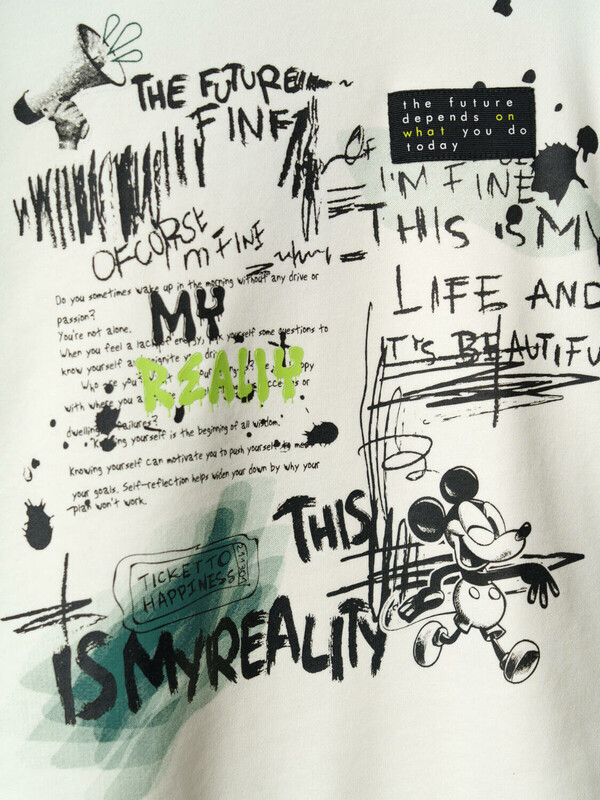 THE FUTURE
FINE
the future
depends on
what you do
today
OF
I'M FINE
THIS IS MY
LIFE AND
IT'S BEAUTIFU
OFCORSE
M FINE
Do you sometimes wake up in the morning without any drive or
passion?
You're not alone.
When you feel a lack of energy, ask yourself some questions to
know yourself and ignite your
Who are you?
with where you a
dwelling failures?
Knowing yourself is the beginning of all wisdom.
Knowing yourself can motivate you to push yourself to meet
your goals. Self-reflection helps widen your down by why your
plan won't work.
MY
REALIY
THIS
TICKET TO
HAPPINESS
IS MY REALITY